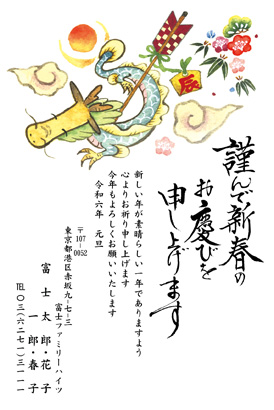 辰
謹んで新春の
お慶びを
申し上げます
新しい年が素晴らしい一年でありますよう
心よりお祈り申し上げます
今年もよろしくお願いいたします
令和六年 元旦
〒107-0052
東京都港区赤坂九-七-三
富士ファミリーハイツ
富士 太郎・花子
一郎・春子
TEL 〇三(六二七一)三一一一